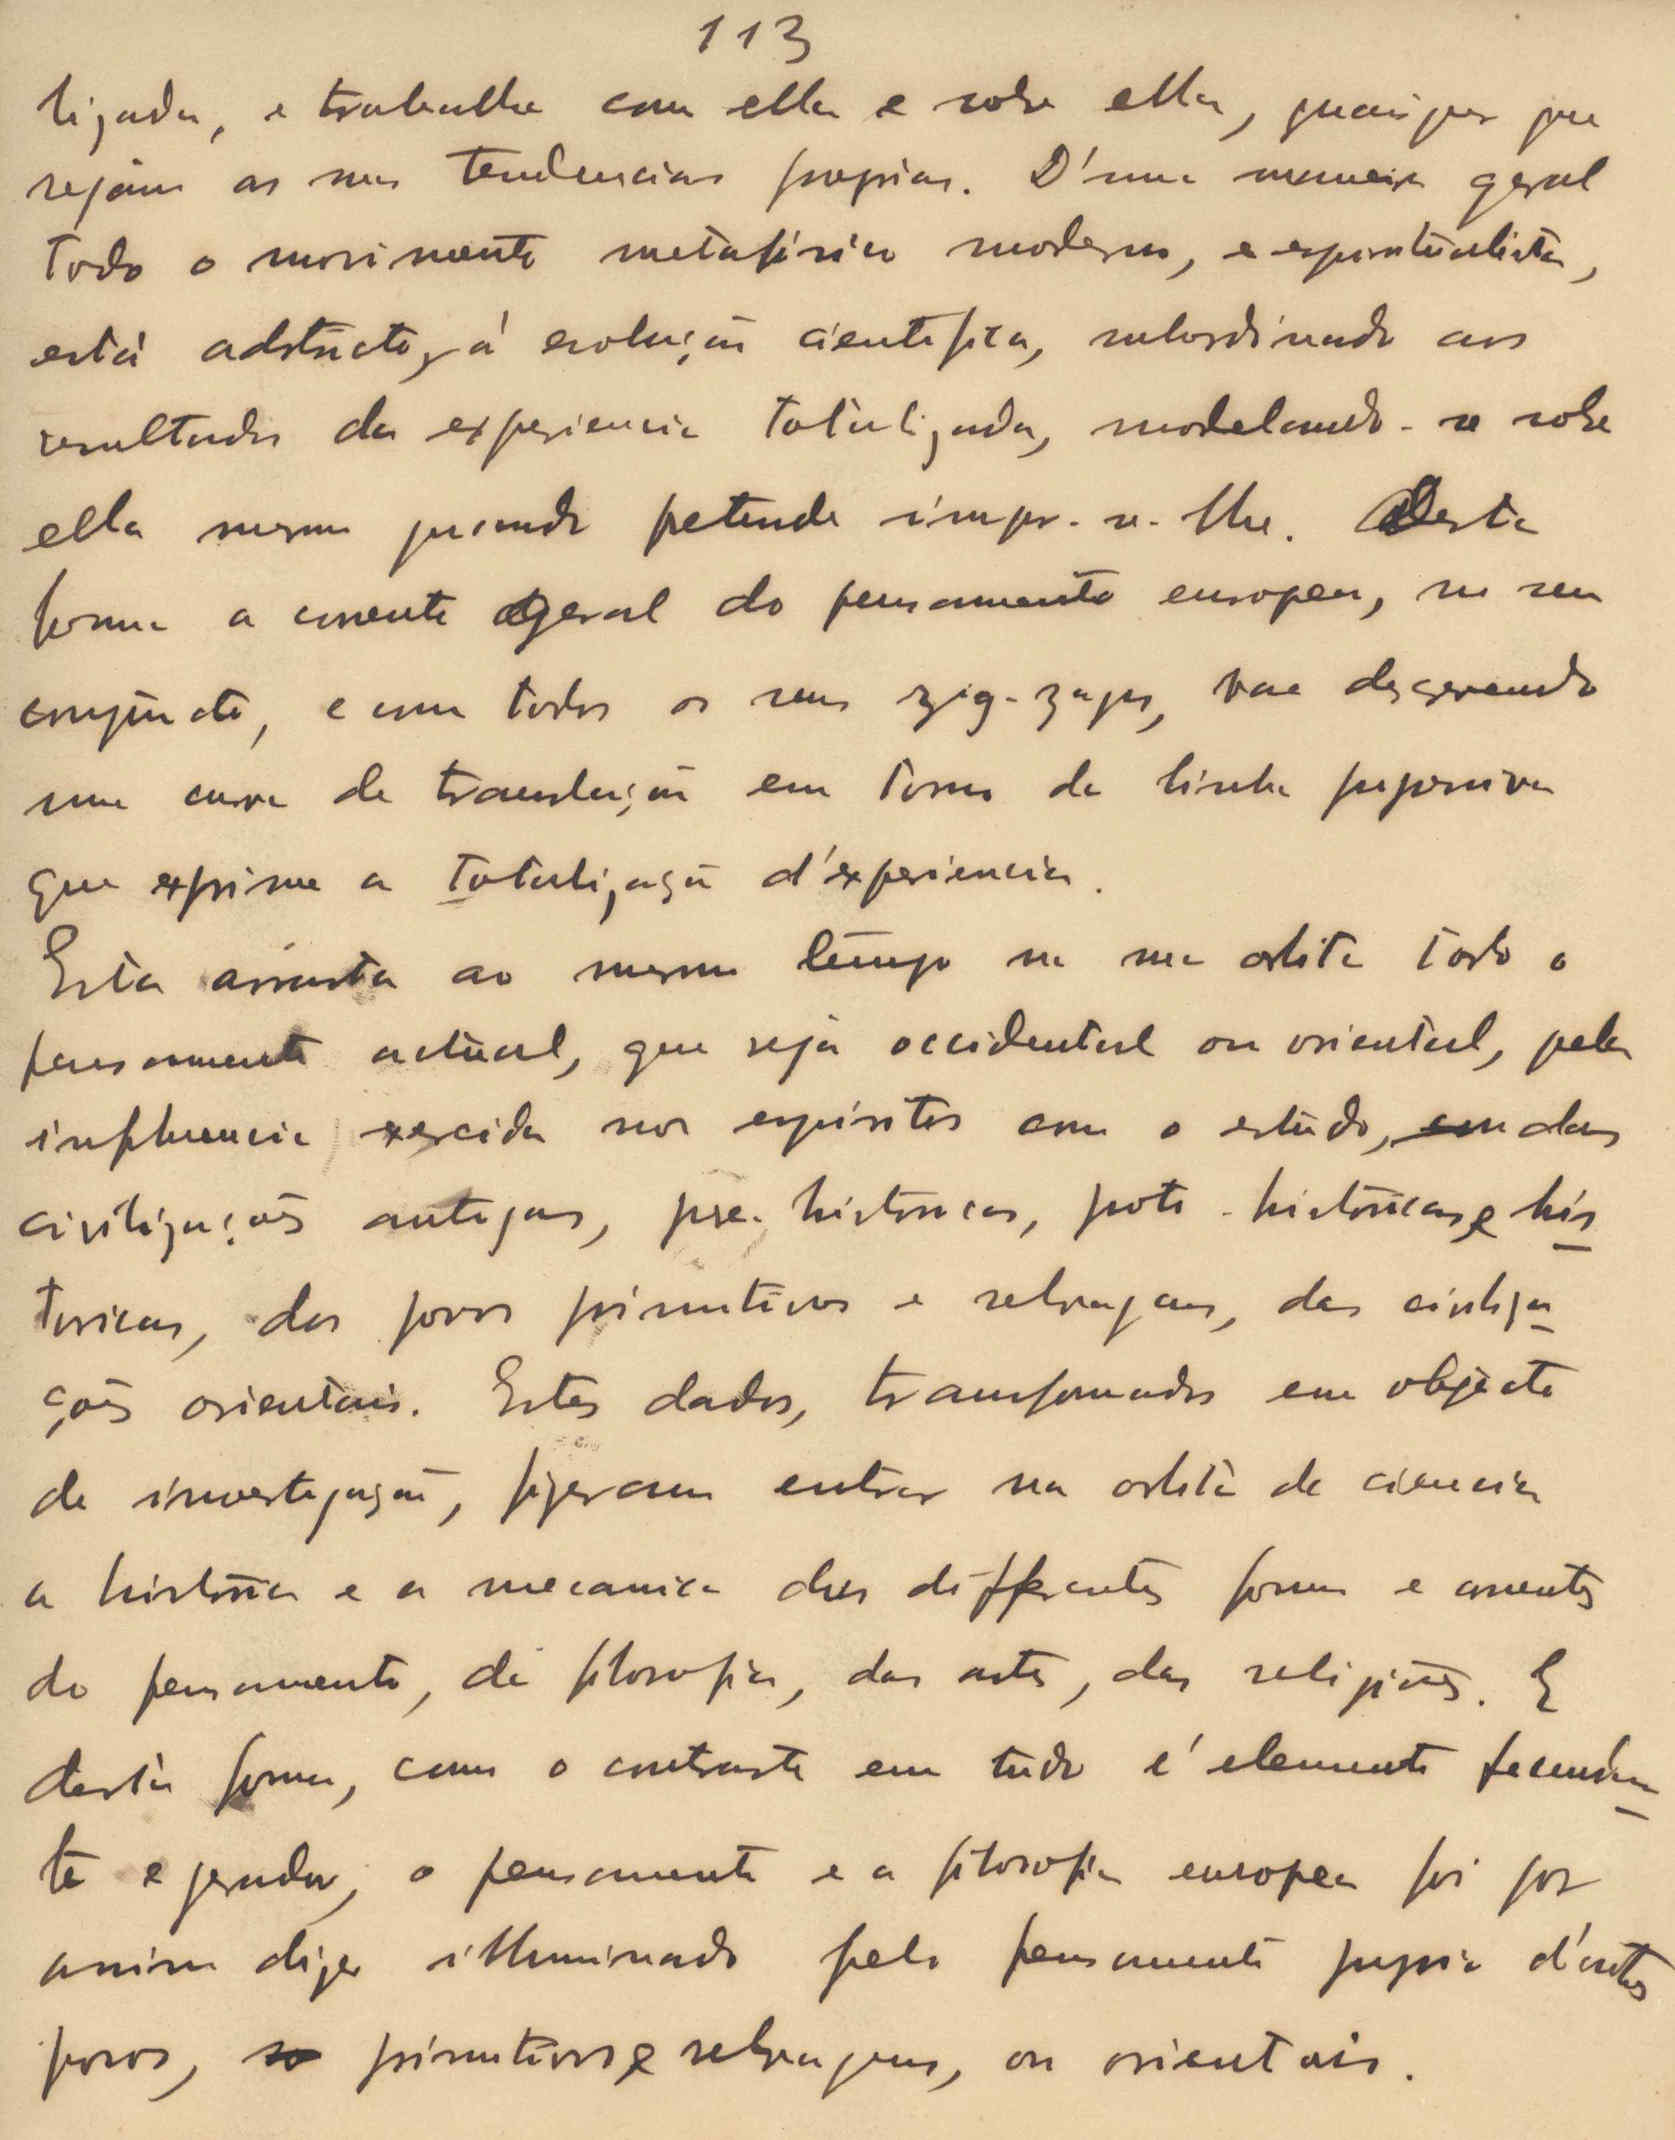 113
lizada, e trabalha com ella e sobre ella, quaisquer que
sejam as suas tendencias proprias. D'uma maneira geral
todo o movimento metafisico moderno, e espiritualista,
está adstricto, á evolução cientifica, subordinado aos
resultados da experiencia totalizada, modelando-se sobre
ella mesmo quando pretende impor-se-lhe. Desta
forma a corrente geral do pensamento europeu, no seu
conjuncto, e com todos os seus zig-zagues, vae descrevendo
uma curva de translação em torno da linha progressiva
que exprime a totalização d'experiencia.
Esta arrasta ao mesmo tempo na sua orbita todo o
pensamento actual, que seja occidental ou oriental, pela
influencia exercida nos espiritos com o estudo, das
civilizações antigas, pre-historicas, proto-historicas e his
toricas, dos povos primitivos e selvagens, das civiliza
ções orientais. Estes dados, transformados em objecto
de investigação, fizeram entrar na orbita da ciencia
a historia e a mecanica das differentes formas e correntes
do pensamento, da filosofia, das artes, das religiões. E
desta forma, como o contraste em tudo é elemento fecundan
te e gerador, o pensamento e a filosofia europea foi por
assim dizer illuminado pelo pensamento proprio d'outros
povos, primitivos e selvagens, ou orientais.